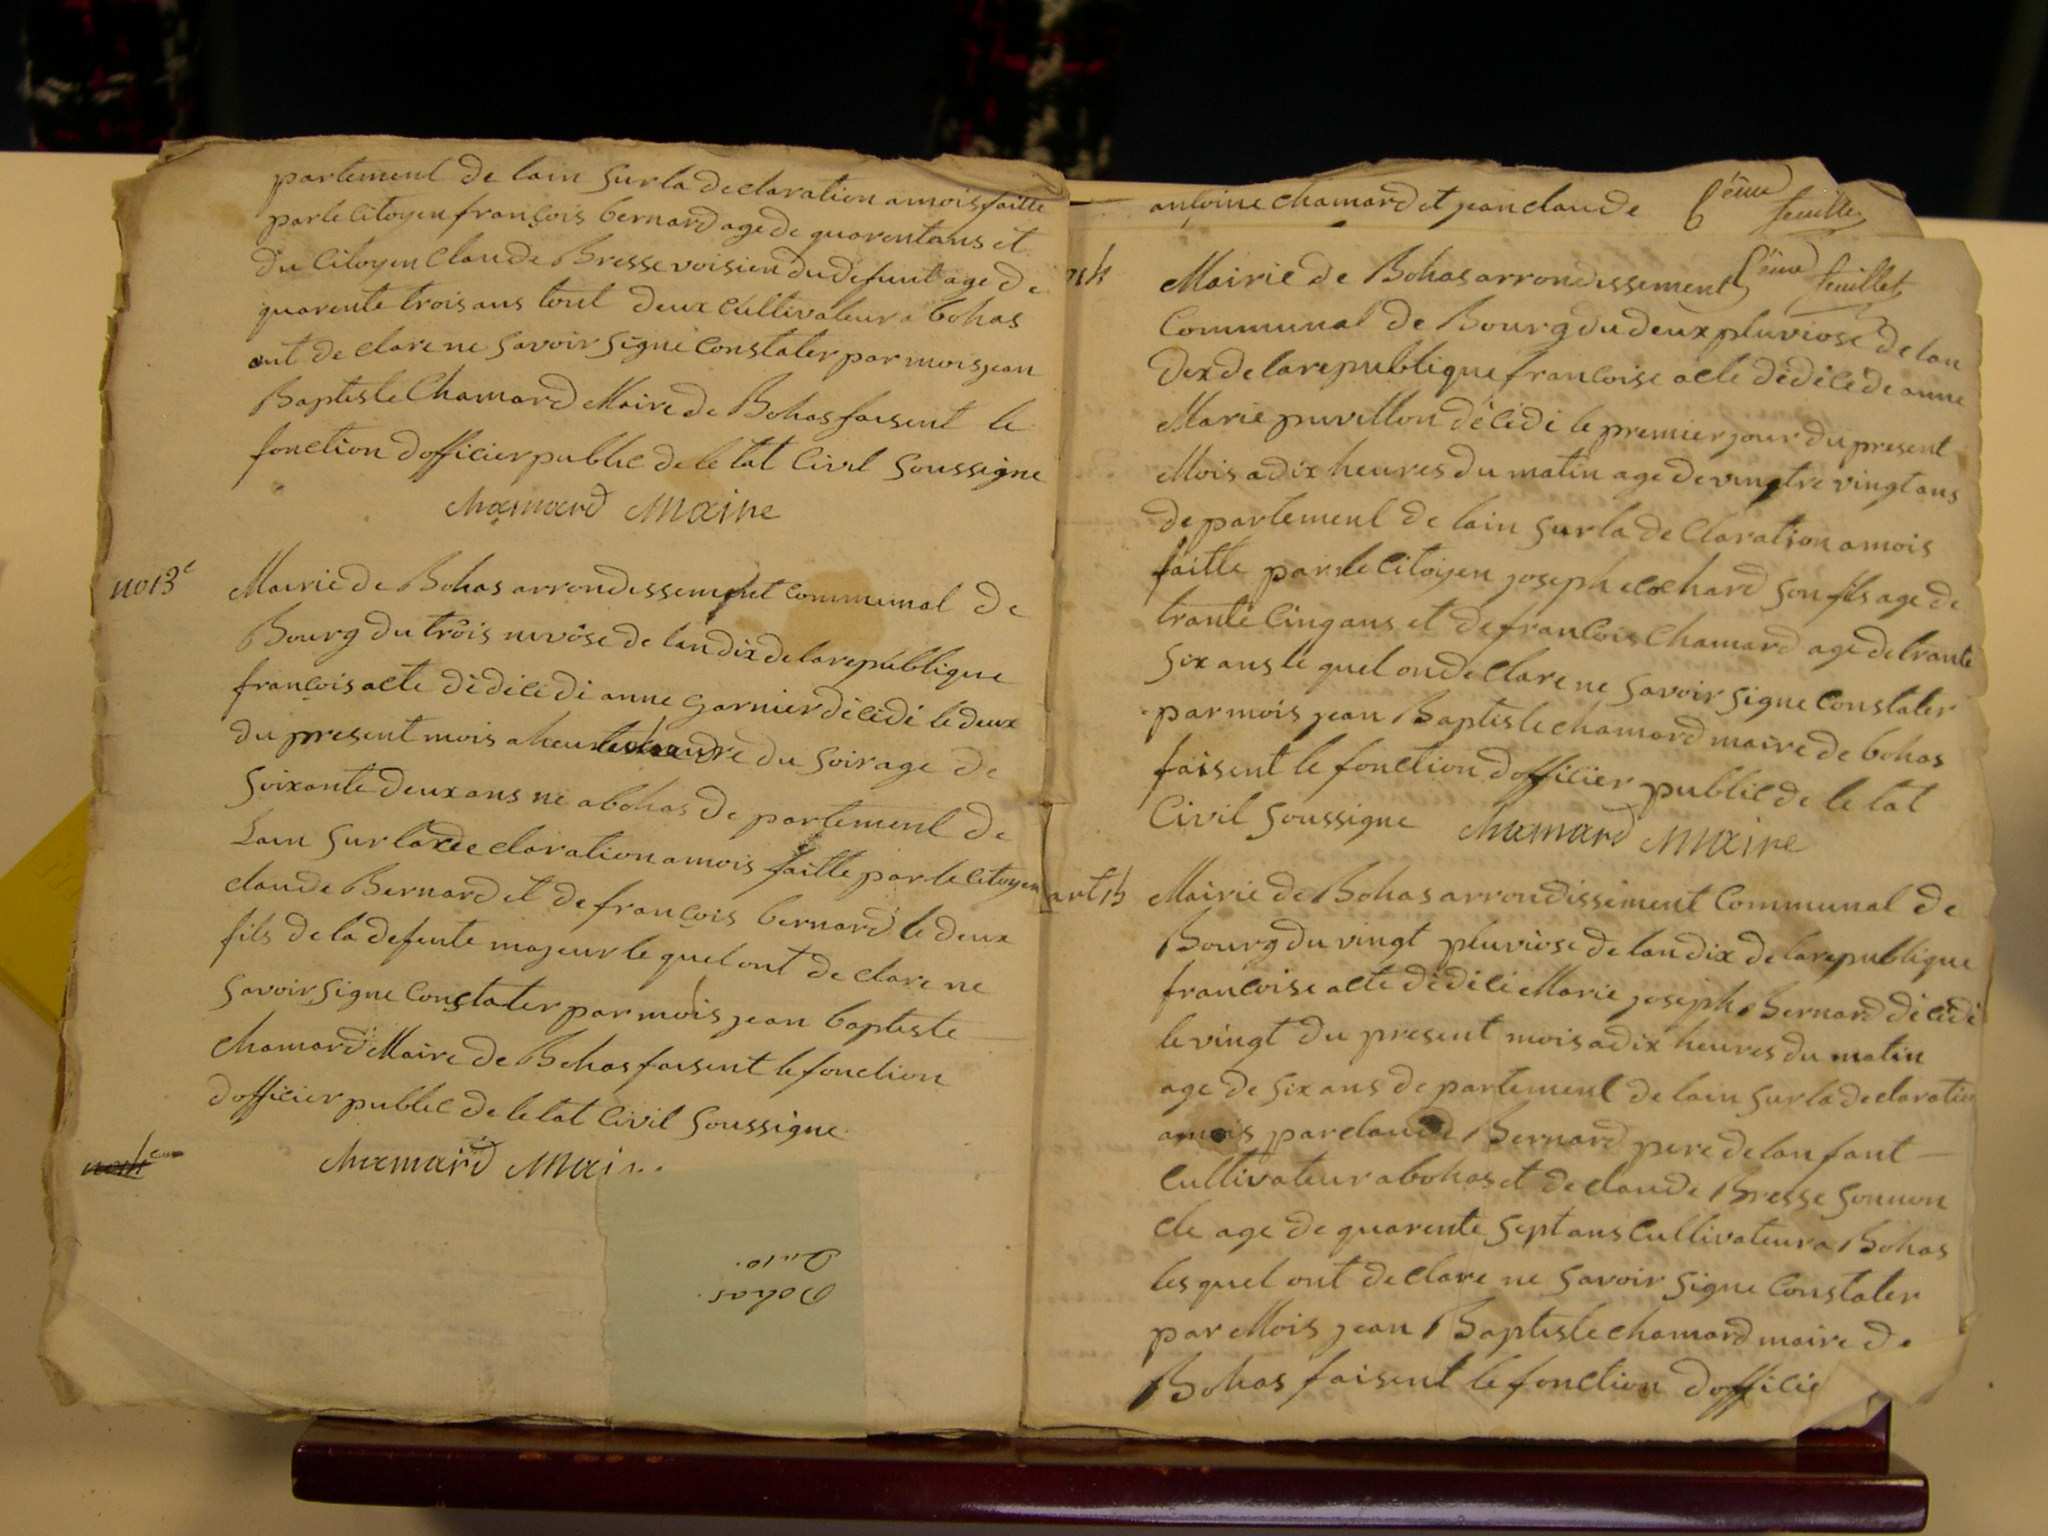 partement de lain sur la declaration a mois faitte
par le Citoyen françois bernard age de quarentans et
du Citoyen Claude Bresse voisien du defunt age de
quarente trois ans tout deux Cultivateur a bohas
ont de clare ne savoir signe Constater par mois jean
Baptiste Chamard Maire de Bohas faisent le
fonction dofficier public de le tat Civil soussigne
Chamard Maire
no 13e Mairie de Bohas arrondissement Communal de
Bourg du trois nivose de lan dix de la republique
françois acte dédécé di anne Garnier décédé le deux
du present mois a heure du soir age de
soixante deux ans ne a bohas de partement de
Lain sur la de claration a mois faitte par le Citoyen
Claude Bernard et de françois bernard le deux
fils de la defente majeur le quel ont de clare ne
savoir signe Constater par mois jean baptiste
Chamard Maire de Bohas faisent le fonction
dofficier public de le tat Civil soussigne
Chamard Mai
Bohas.
An 10.
antoine Chamard et jean claude 6ème feuille
Mairie de Bohas arrondissement 6ème feuillet
Communal de Bourg du deux pluviose de lan
dix de la republique francoise acte dédécé de anne
Marie puvillon décédé le premier jour du present
Mois a dix heures du matin age de vingtre vingt ans
de partement de lain sur la de Claration a mois
faitte par le Citoyen joseph cochard son fils age de
trante Cinq ans et de francois Chamard age de trante
six ans le quel on de Clare ne savoir signe Constater
par mois jean Baptiste chamard maire de bohas
faisent le fonction dofficier public de le tat
Civil soussigne Chamard Maire
art 15 Mairie de Bohas arrondissement Communal de
Bourg du vingt pluviose de lan dix de la republique
francoise acte dédécé Marie joseph Bernard décédé
le vingt du present mois a dix heures du matin
age de six ans de partement de lain sur la de claration
a mois par claude Bernard pere de lan fant
Cultivateur a bohas et de claude Bresse son non
cle age de quarente sept ans Cultivateur a Bohas
les quel ont de Clare ne savoir signe Constater
par Mois jean Baptiste chamard maire de
Bohas faisent le fonction dofficie